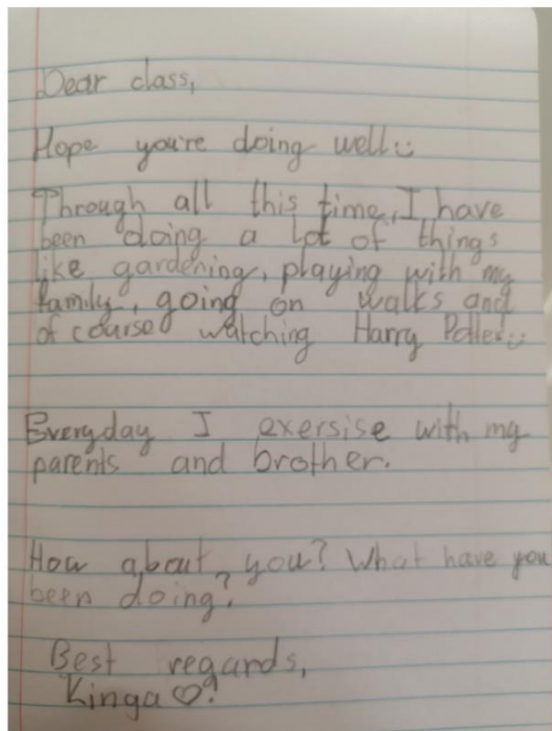 Dear class,
Hope you're doing well :)
Through all this time, I have
been doing a lot of things
like gardening, playing with my
family, going on walks and
of course watching Harry Potter :)
Everyday I exersise with my
parents and brother.
How about you? What have you
been doing?
Best regards,
Kinga ♡!